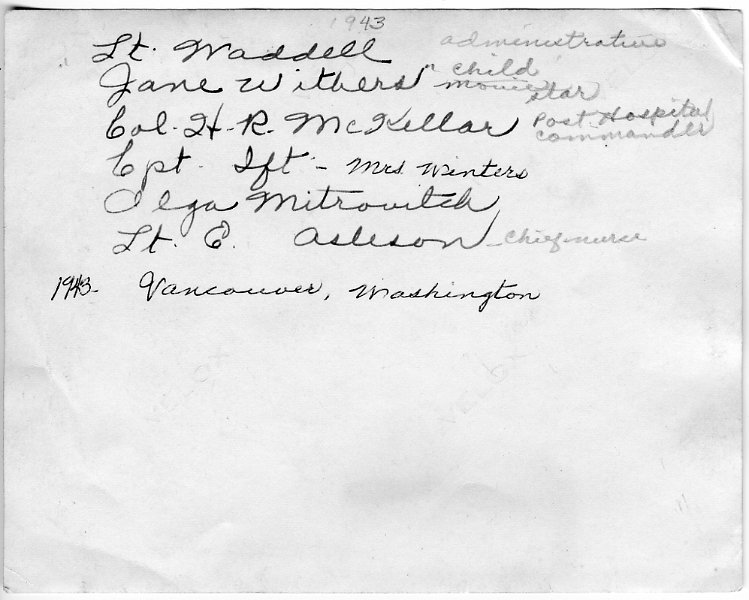 1943
Lt. Waddell administrative
Jane Withers" child movie star
Col. H. R. McKellar Post Hospital commander
Cpt. Ift - Mrs. Winters
Olga Mitrovitch
Lt. E. Asleson - chief nurse
1943. Vancouver, Washington